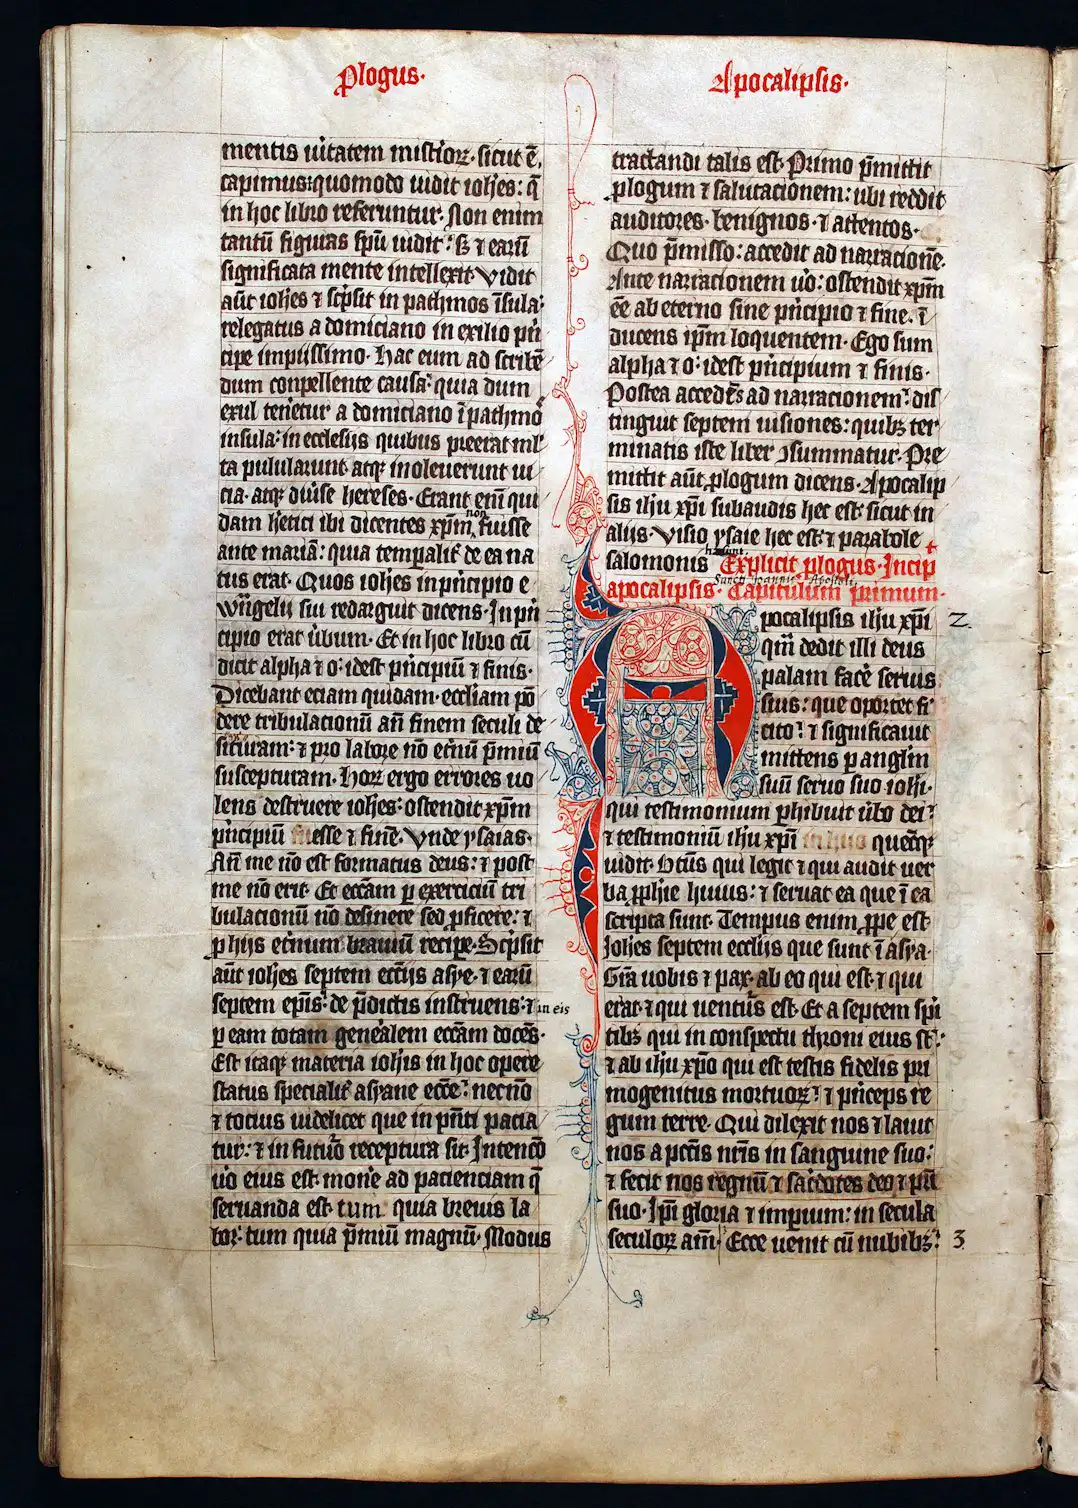 Plogus·
mentis ūitatem mistioꝝ· sicut ē.
capimus: quomodo uidit ioħes: q̄
in hoc libro referuntur· Non enim
tantū figuras spū uidit: sꝫ ⁊ earū
significata mente intellexit· Vidit
aūt ioħes ⁊ sc̄psit in pathmos ī̄sula:
relegatus a domiciano in exilio p̄n
cipe impiissimo· Hac eum ad scribē
dum conpellente causa: quia dum
exul tenetur a domiciano ī pathmo
insula: in ecclesijs quibus preerat ml̄
ta pulularunt atqꝫ inoleuerunt ui
cia· atqꝫ diūse hereses· Erant enī qui
dam ħetici ibi dicentes xp̄m non fuisse
ante mariā: quia tempalit̄ de ea na
tus erat· Quos ioħes in p̄ncipio e
wn̄gelij sui redarguit dicens· In p̄n
cipio erat ūbum· Et in hoc libro cū
dicit alpha ⁊ o: idest p̄ncipiū ⁊ finis·
Dicebant eciam quidam· eccl̄iam pō
dere tribulacionū añ finem seculi de
situram: ⁊ pro labore nō et̄nū p̄miū
suscepturam· Hoꝝ ergo errores uo
lens destruere ioħes: ostendit xp̄m
p̄ncipiū esse ⁊ finē· Vnde ysaias·
Añ me nō est formatus deus: ⁊ post
me nō erit· Et ecc̄am ꝑ exerciciū tri
bulacionū nō desinere sed ꝓficere: ⁊
ꝑ hijs et̄num brauiū recipe· Sc̄psit
aūt ioħes septem ecc̄ijs asye· ⁊ earū
septem ep̄is· de p̄dictis instruens: ⁊ in eis
ꝑ eam totam gen̄alem ecc̄am docēs·
Est itaqꝫ materia ioħis in hoc opere
status specialit̄ asyane ecc̄e: necnō
⁊ tocius uidelicet que in p̄nti pacia
tur: ⁊ in futūo receptura sit· Intencō
ūo eius est· monē̄ ad pacienciam q̄
seruanda est· tum quia breuis la
bor: tum quia p̄miū magnū· Modus
Apocalipsis·
tractandi talis est· Primo p̄mittit
ꝓlogum ⁊ salutacionem: ubi reddit
auditores· benignos· ⁊ attentos·
Quo p̄misso: accedit ad narracionē·
Ante narracionem ūo: ostendit xp̄m
ēē ab eterno sine p̄ncipio ⁊ fine. ī
ducens ip̄m loquentem· Ego sum
alpha ⁊ o: idest p̄ncipium ⁊ finis·
Postea acced̄s ad narracionem: dis
tinguit septem uisiones: quibꝫ ter
minatis iste liber ꝯsummatur· Pre
mittit aūt ꝓlogum dicens· Apocalip
sis iħu xp̄i subaudis hec est· sicut in
alijs· Visio ysaie hec est· ⁊ parabole
salomonis Explicit ꝓlogus· Incip
Sancti Joannis Apostoli
apocalipsis· Capitulum primum·
Apocalipsis iħu xp̄i 2.
qm̄ dedit illi deus
palam facē seruis
suis: que oportet fi
cito: ⁊ significauit
mittens ꝑ angl̄m
suū seruo suo ioħi·
qui testimonium ꝑhibuit ūbo dei:
⁊ testimoniū iħu xp̄i quecūqꝫ
uidit· Bt̄us qui legit ⁊ qui audit uer
ba ꝓph̄ie huius: ⁊ seruat ea que ī ea
scripta sunt· Tempus enim ꝓpe est·
Ioħes septem eccl̄ijs que sunt ī asya·
Gr̄a uobis ⁊ pax· ab eo qui est· ⁊ qui
erat· ⁊ qui uentūs est· Et a septem sp̄i
tibꝫ qui in conspectu throni eius st̄·
⁊ ab iħu xp̄o qui est testis fidelis pri
mogenitus mortuoꝝ: ⁊ p̄nceps re
gum terre· Qui dilexit nos ⁊ lauit
nos a pcc̄is nr̄is in sanguine suo:
⁊ fecit nos regnū ⁊ sac̄dotes deo ⁊ pr̄i
suo· Ip̄i gloria ⁊ impium: in secula
seculoꝝ am̄· Ecce uenit cū nubibꝫ: 3